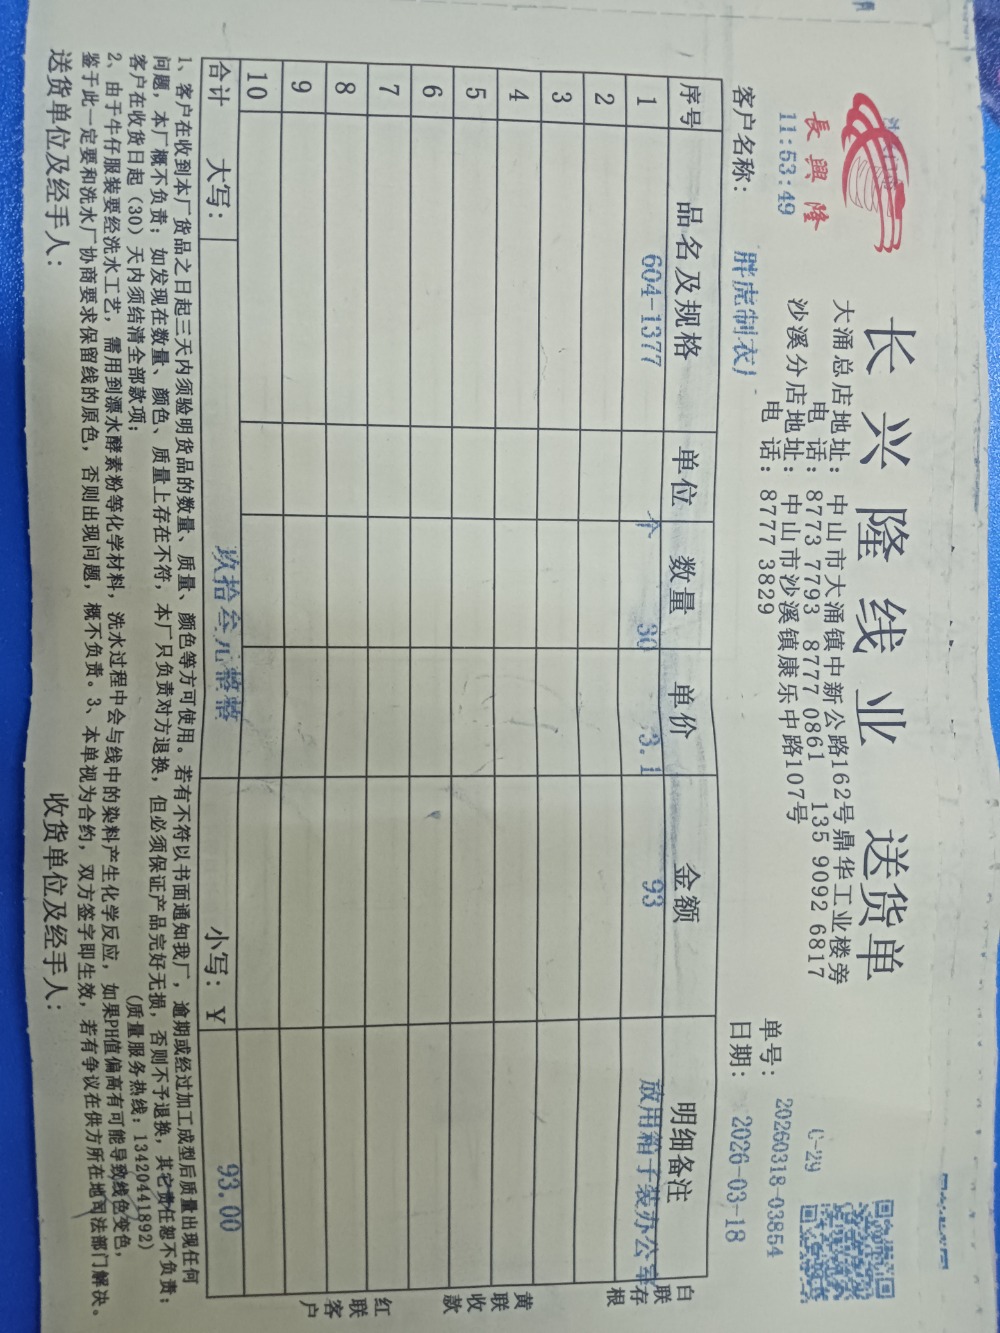 長興隆
11:53:49
长兴隆线业 送货单
大涌总店地址：中山市大涌镇中新公路162号鼎华工业楼旁
电话：8773 7793 8777 0861 135 9092 6817
沙溪分店地址：中山市沙溪镇康乐中路107号
电话：8777 3829
C-29
单号：20260318-03854
客户名称：胖虎制衣厂
日期：2026-03-18
序号 品名及规格 单位 数量 单价 金额 明细备注
1 604-1377 个 30 3.1 93 放用箱子装办公室
2
3
4
5
6
7
8
9
10
合计 大写：玖拾叁元整整 小写：¥ 93.00
白联存根
黄联收款
红联客户
1、客户在收到本厂货品之日起三天内须验明货品的数量、质量、颜色等方可使用。若有不符以书面通知我厂，逾期或经过加工成型后质量出现任何
问题，本厂概不负责；如发现在数量、颜色、质量上存在不符，本厂只负责对方退换，但必须保证产品完好无损，否则不予退换，其它责任恕不负责；
客户在收货日起（30）天内须结清全部款项； (质量服务热线：13420441892)
2、由于牛仔服装要经洗水工艺，需用到漂水酵素粉等化学材料，洗水过程中会与线中的染料产生化学反应，如果PH值偏高有可能导致线色变色，
鉴于此一定要和洗水厂协商要求保留线的原色，否则出现问题，概不负责。3、本单视为合约，双方签字即生效，若有争议在供方所在地司法部门解决。
送货单位及经手人： 收货单位及经手人：